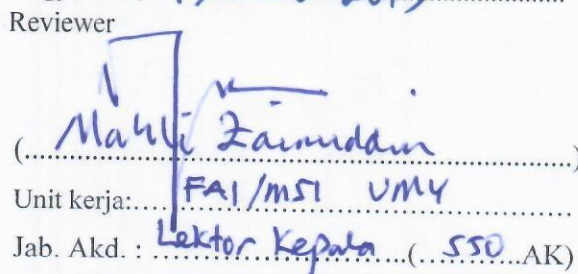 Reviewer
(Mahli Zainuddin)
Unit kerja: FAI/MSI UMY
Jab. Akd. : Lektor Kepala (550 AK)